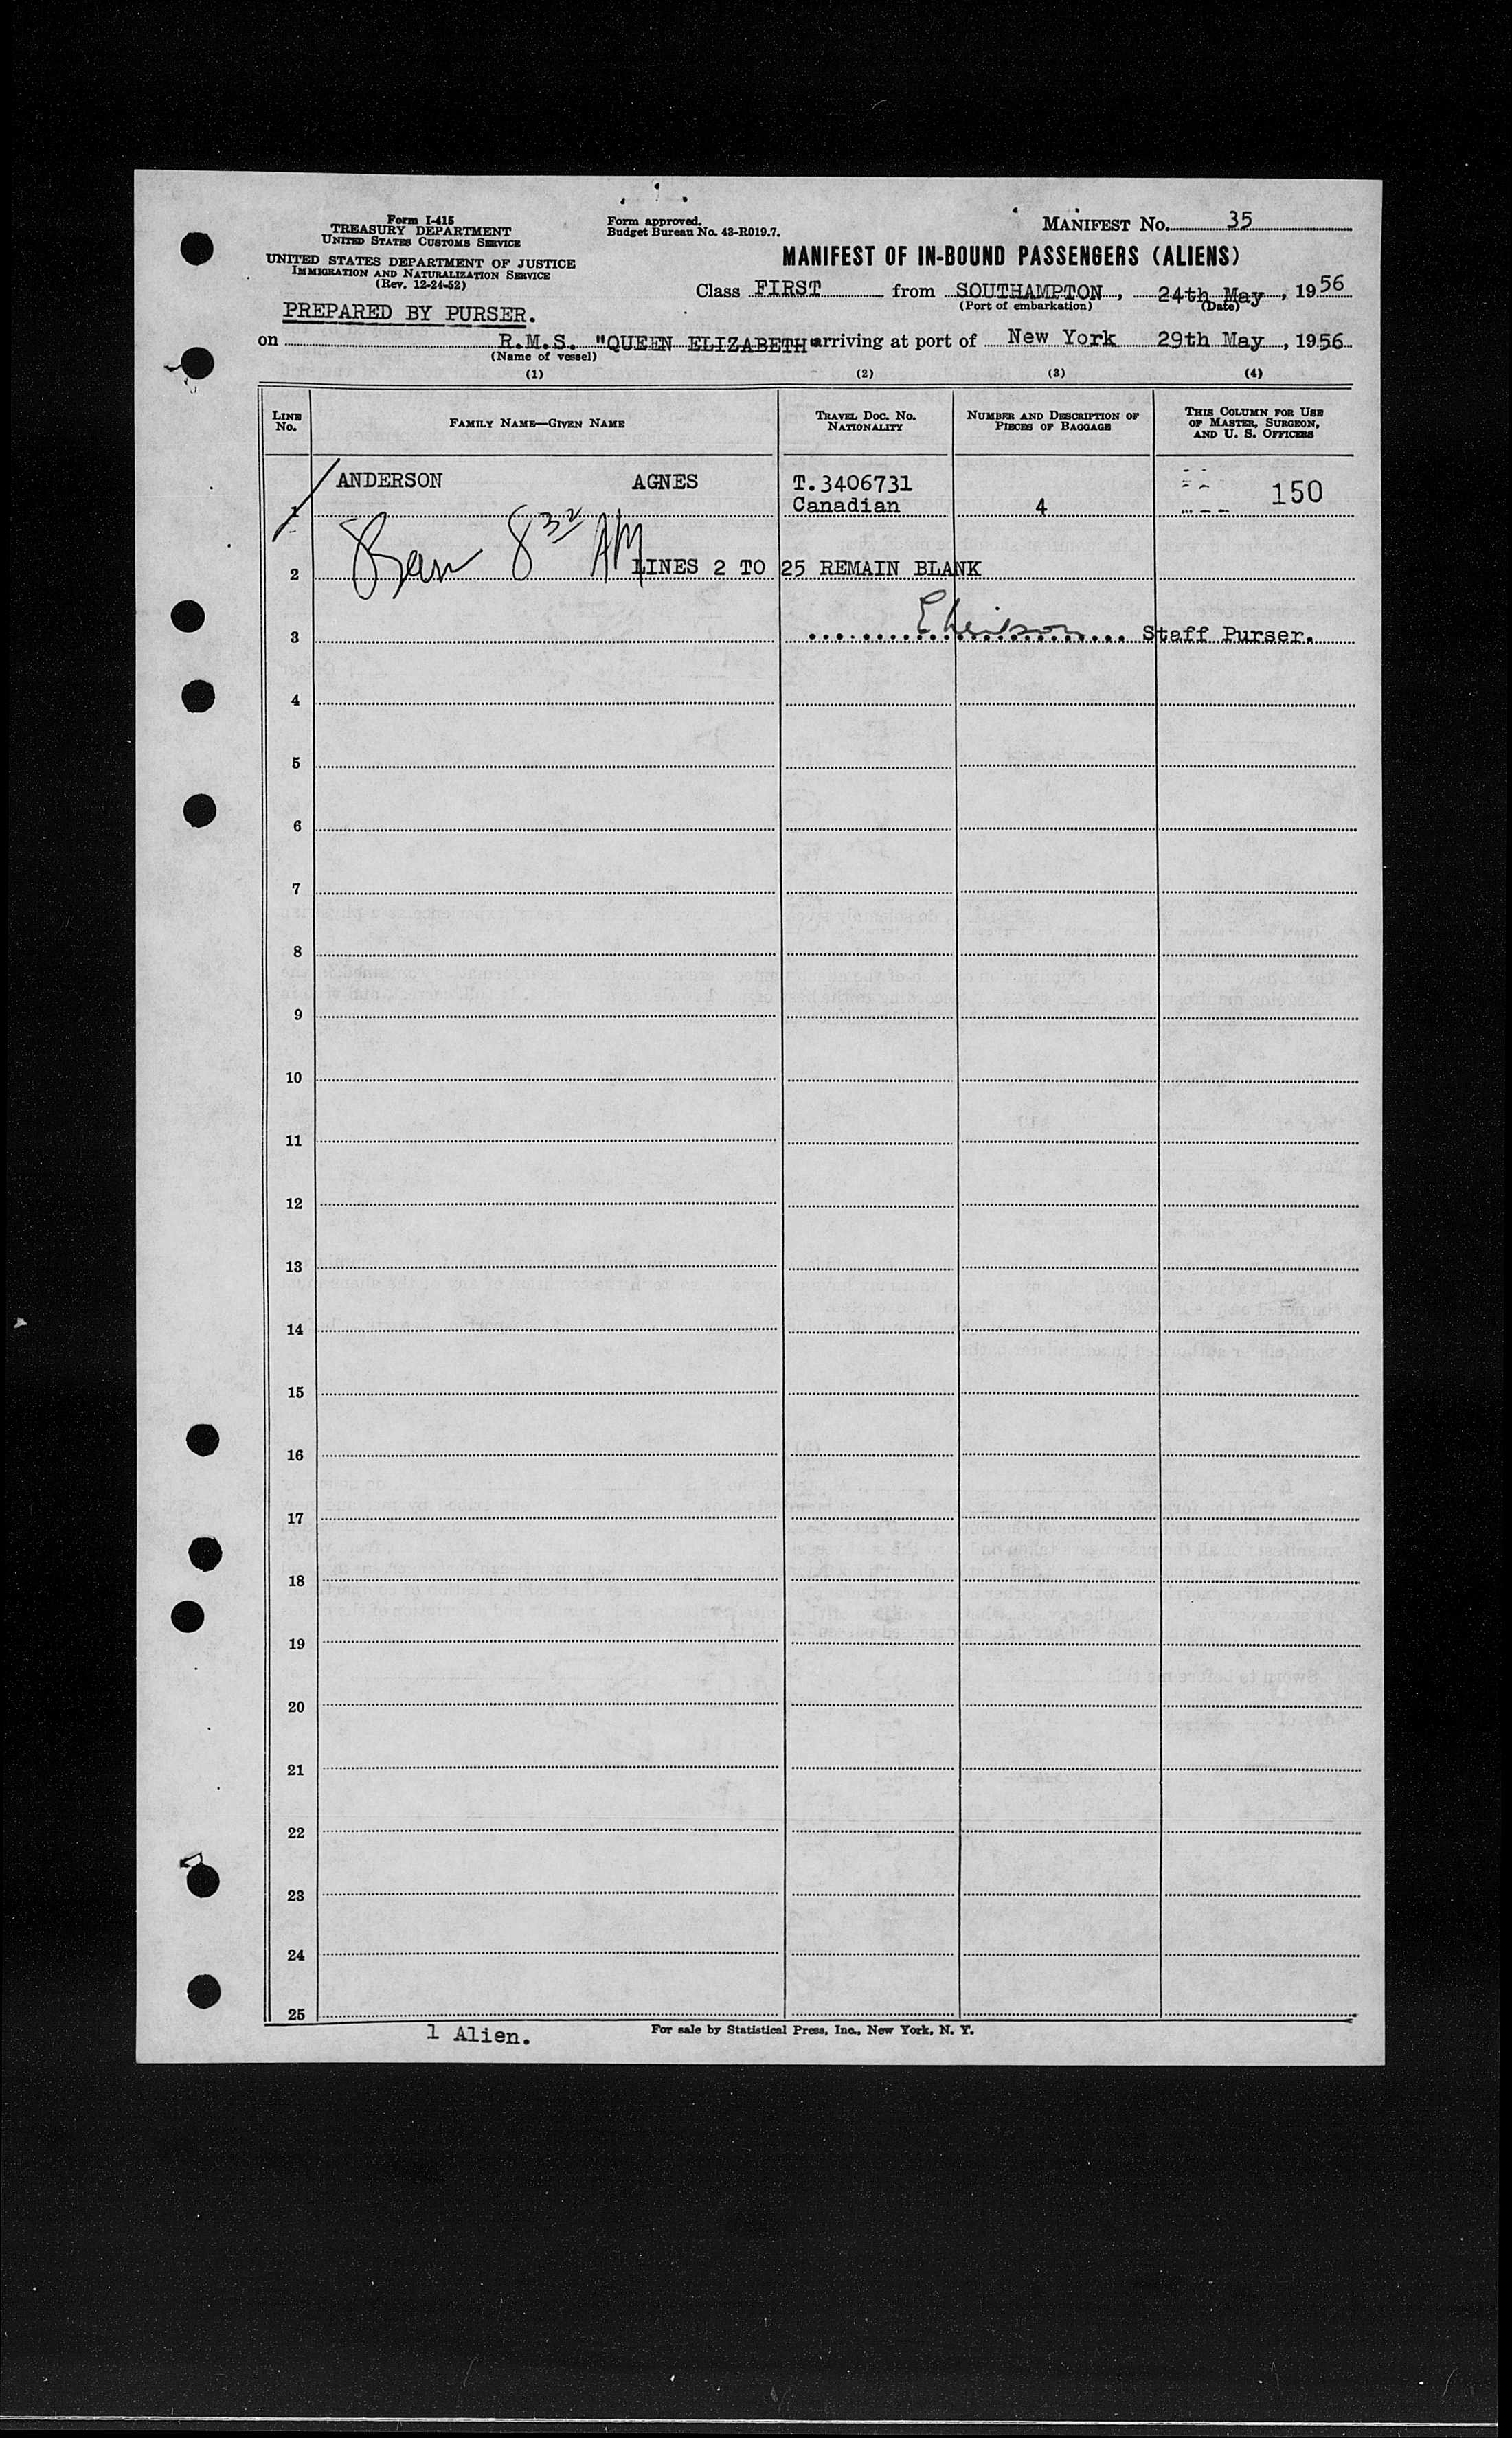 Form I-415
TREASURY DEPARTMENT
UNITED STATES CUSTOMS SERVICE
UNITED STATES DEPARTMENT OF JUSTICE
IMMIGRATION AND NATURALIZATION SERVICE
(Rev. 12-24-52)
PREPARED BY PURSER.
Form approved.
Budget Bureau No. 43-R019.7.
MANIFEST No. 35
MANIFEST OF IN-BOUND PASSENGERS (ALIENS)
Class FIRST from SOUTHAMPTON, 24th May, 1956
(Port of embarkation) (Date)
on R.M.S. "QUEEN ELIZABETH" arriving at port of New York 29th May, 1956
(Name of vessel)
(1) (2) (3) (4)
LINE No. FAMILY NAME—GIVEN NAME TRAVEL DOC. No. NATIONALITY NUMBER AND DESCRIPTION OF PIECES OF BAGGAGE THIS COLUMN FOR USE OF MASTER, SURGEON, AND U. S. OFFICERS
ANDERSON AGNES T.3406731 150
1 Canadian 4
8 32 AM
2 LINES 2 TO 25 REMAIN BLANK
3 Staff Purser.
4
5
6
7
8
9
10
11
12
13
14
15
16
17
18
19
20
21
22
23
24
25
1 Alien.
For sale by Statistical Press, Inc., New York, N. Y.